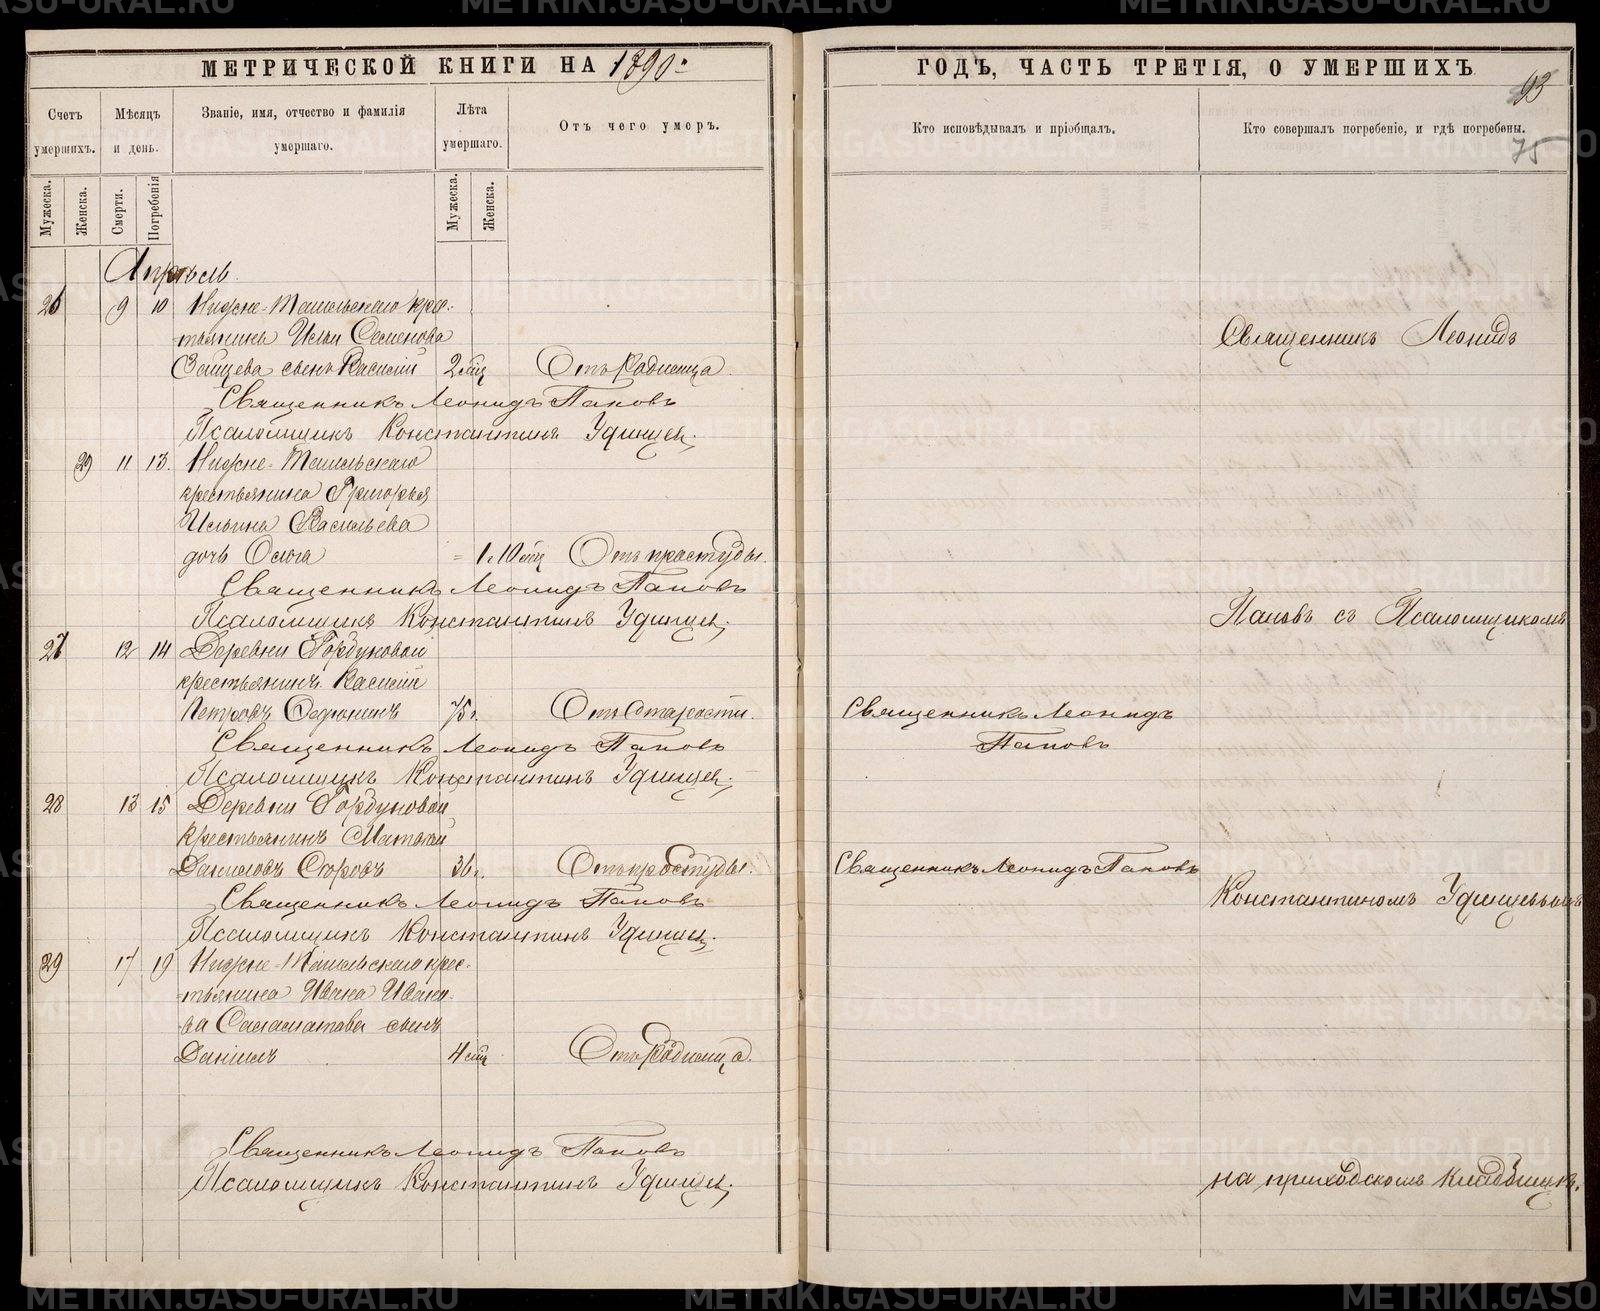 МЕТРИЧЕСКОЙ КНИГИ НА 1890
Счетъ умершихъ.
Мѣсяцъ и день.
Званіе, имя, отчество и фамилія умершаго.
Лѣта умершаго.
Отъ чего умеръ.
Мужеска.
Женска.
Смерти.
Погребенія
Мужеска.
Женска.
Апрѣль
26 9 10 Нижне-Тагильскаго крес-
тьянина Ильи Семенова
Зайцева сынъ Василій 2 мѣс Отъ Родимца.
Священникъ Леонидъ Паповъ
Псаломщикъ Константинъ Удинцев.
29 11 13. Нижне-Тагильскаго
крестьянина Григорья
Ильина Васильева
дочь 1. 10 мѣс Отъ простуды.
Священникъ Леонидъ Паповъ
Псаломщикъ Константинъ Удинцев.
27 12 14 Деревни Гордуновой
крестьянинъ Василій
Петровъ Федюнинъ 75 г. Отъ Старости.
Священникъ Леонидъ Паповъ
Псаломщикъ Константинъ Удинцев.
28 13 15 Деревни Гордуновой
крестьянинъ Матвѣй
Даниловъ 36 г. Отъ простуды.
Священникъ Леонидъ Паповъ
Псаломщикъ Константинъ Удинцев.
29 17 19 Нижне-Тагильскаго крес-
тьянина Ивана Ивано-
ва Саламатова сынъ
Даніилъ 4 мѣс Отъ Родимца.
Священникъ Леонидъ Паповъ
Псаломщикъ Константинъ Удинцев.
ГОДЪ, ЧАСТЬ ТРЕТІЯ, О УМЕРШИХЪ
93
Кто исповѣдывалъ и пріобщалъ.
Кто совершалъ погребеніе, и гдѣ погребены.
75
Священникъ Леонидъ
Паповъ съ Псаломщикомъ
Священникъ Леонидъ
Паповъ
Священникъ Леонидъ Паповъ
Константиномъ Удинцевымъ
на приходскомъ кладбищѣ.
METRIKI.GASO-URAL.RU